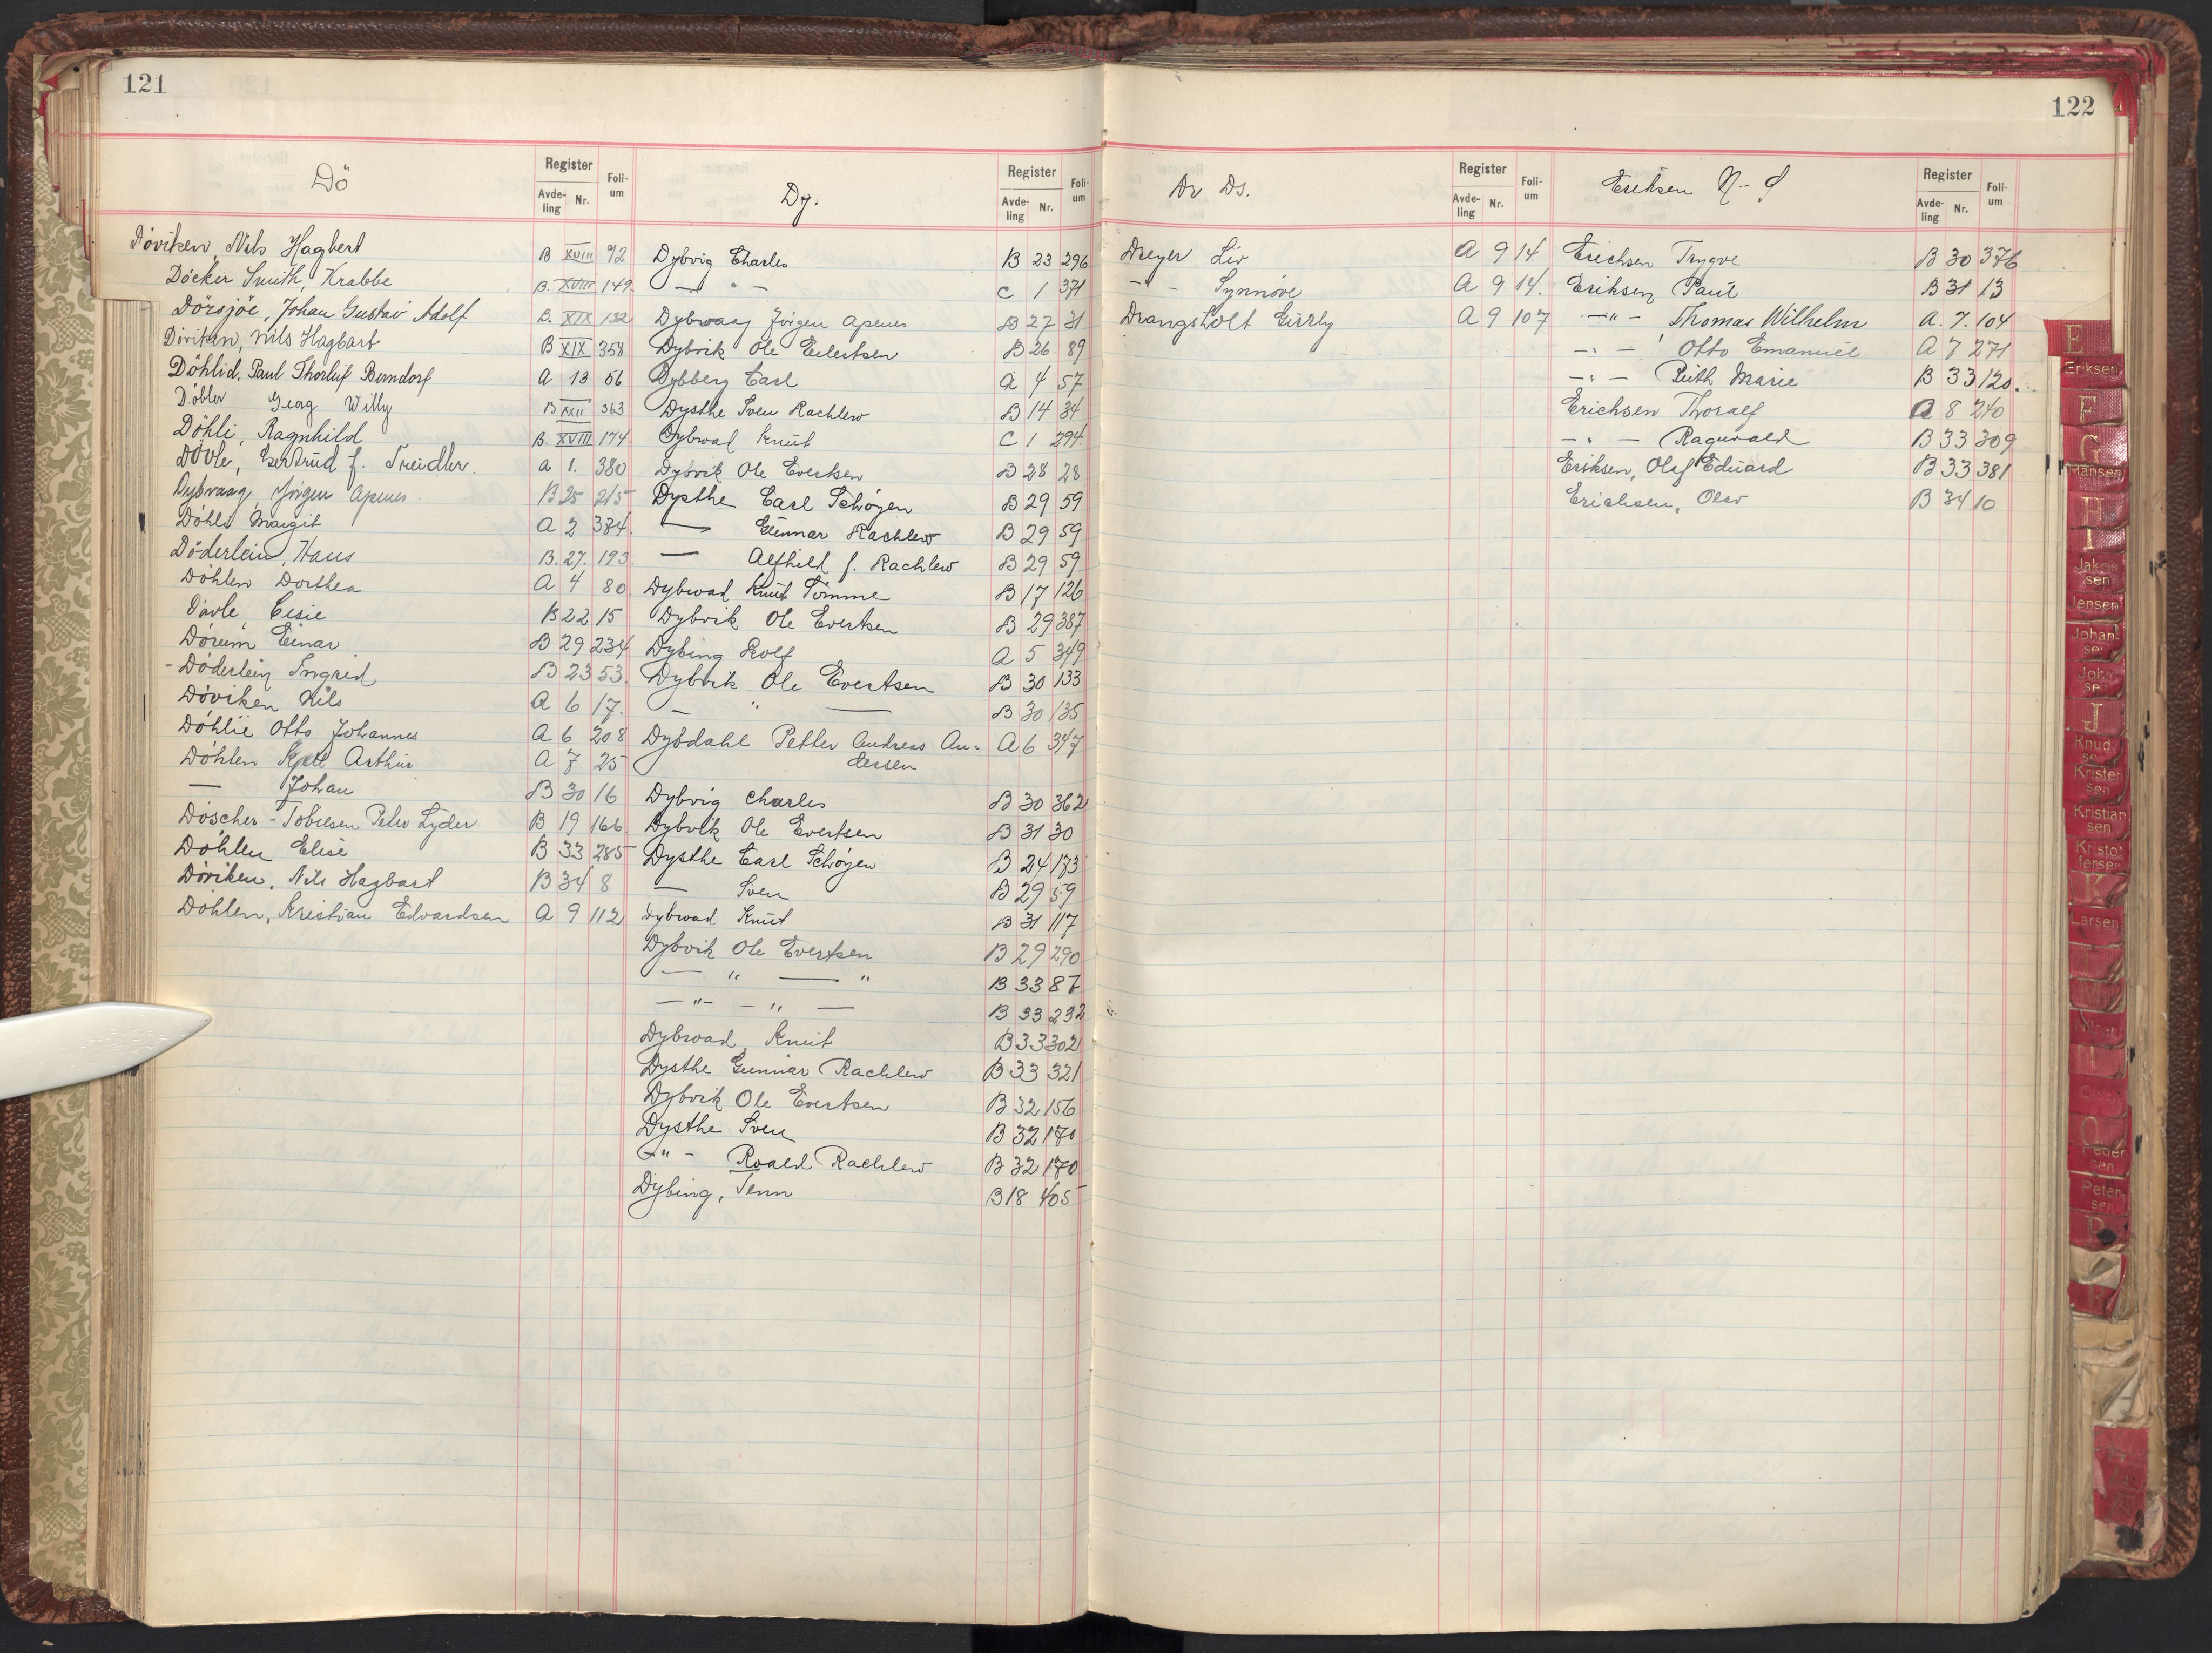 121
Dö
Register
Avde-
ling
Nr.
Foli-
um
Döviken, Nils Hagbert B XVIII 92
Döcker Smith, Krabbe B. XVIII 149.
Dörsjöe, Johan Gustav Adolf B. XIX 132
Döviken, Nils Hagbart B XIX 358
Döhlid. Paul Thorleif Berndorf A 13 56
Döbler Georg Willy B XXII 363
Döhli, Ragnhild B. XVIII 174
Dövle, Gertrud f. Treidler. A 1. 380
Dybvaag, Jörgen Apenes B 25 215
Döhli Margit A 2 384.
Döderlein, Hans B. 27. 193.
Döhlen Dorthea A 4 80
Dövle, Cisie B 22 15
Döreum Einar B 29 234
- Döderlein Ingrid B 23 53.
Döviken Nils A 6 17.
Döhlie Otto Johannes A 6 208
Döhlen Kjell Arthur A 7 25
— Johan B 30 16
Döscher - Tobiesen Peter Lyder B 19 166
Döhlen Elise B 33 285
Döviken, Nils Hagbart B 34 8
Döhlen, Kristian Edvardsen A 9 112
Dy.
Register
Avde-
ling
Nr.
Foli-
um
Dybvig Charles B 23 296
— " — C 1 371
Dybwaag Jörgen Apenes B 27 31
Dybvik Ole Evertsen B 26 89
Dybberg Carl A 4 57
Dysthe Sven Rachlew B 14 34
Dybwad Knut C 1 294.
Dybvik Ole Evertsen B 28 28
Dysthe Carl Schöyen B 29 59
— Gunnar Rachlew B 29 59
— Alfhild f. Rachlew B 29 59
Dybwad Knut Tömme B 17 126
Dybvik Ole Evertsen B 29 387
Dybing Rolf A 5 349
Dybvik Ole Evertsen B 30 133
— " — B 30 135
Dybdahl Petter Andreas An- A 6 347
dersen
Dybvig Charles B 30 362
Dybvik Ole Evertsen B 31 30
Dysthe Carl Schöyen B 24 173
— Sven B 29 59
Dybwad Knut B 31 117
Dybvik Ole Evertsen B 29 290
— " — " B 33 87
— " — " — B 33 232
Dybwad, Knut B 33 302
Dysthe Gunnar Rachlew B 33 321
Dybvik Ole Evertsen B 32 156
Dysthe Sven B 32 170
— " - Roald Rachlew B 32 170
Dybing, Jenn B 18 405
122
Dr Ds.
Register
Avde-
ling
Nr.
Foli-
um
Dreyer Liv A 9 14
— - Synnöve A 9 14.
Drangsholt Gurly A 9 107
Eriksen N-
Register
Avde-
ling
Nr.
Foli-
um
Erichsen Trygve B 30 376
Eriksen Paul B 31 13
— " - Thomas Wilhelm A. 7. 104
— " — Otto Emanuel A 7 271
— " — Ruth Marie B 33 120.
Erichsen Thoralf A 8 240
— " — Ragnvald B 33 309
Eriksen, Olaf Edvard B 33 381
Erichsen, Olav B 34 10
E
Eriksen
F
G
Hansen
H
I
Jakob
sen
Jensen
Johan
sen
John
sen
J
Knud
sen
Kristen
sen
Kristian
sen
Kristof
fersen
K
Larsen
N
O
Peder
sen
Peter
sen
P